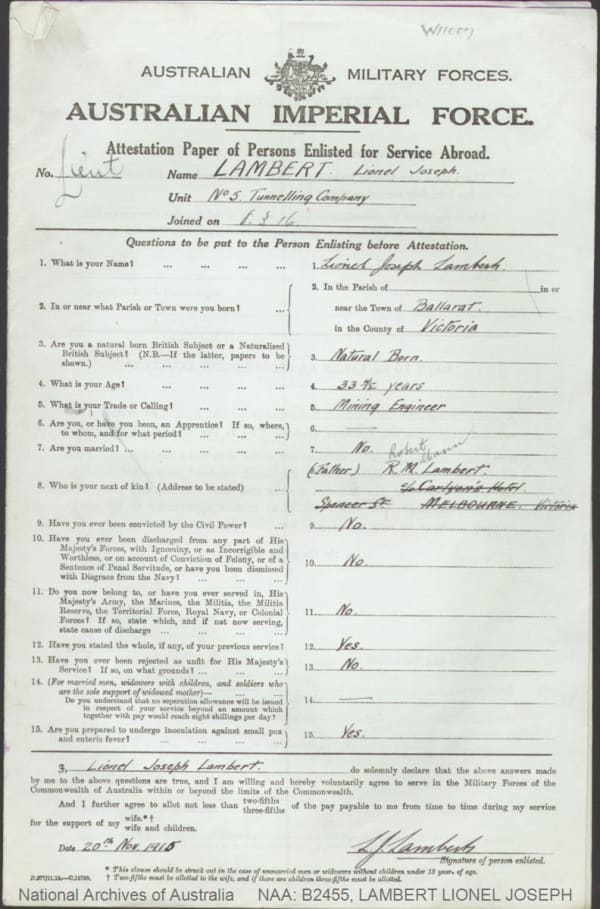 W11007
AUSTRALIAN MILITARY FORCES.
AUSTRALIAN IMPERIAL FORCE.
Attestation Paper of Persons Enlisted for Service Abroad.
No. Lieut Name LAMBERT. Lionel Joseph.
Unit No 5. Tunnelling Company
Joined on 16.
Questions to be put to the Person Enlisting before Attestation.
1. What is your Name? ... ... ... ... 1. Lionel Joseph Lambert.
2. In or near what Parish or Town were you born? ... 2. In the Parish of in or
near the Town of Ballarat.
in the County of Victoria
3. Are you a natural born British Subject or a Naturalized
British Subject? (N.B.—If the latter, papers to be
shown.) ... ... ... ... ... 3. Natural Born.
4. What is your Age? ... ... ... ... 4. 33 years
5. What is your Trade or Calling? ... ... ... 5. Mining Engineer
6. Are you, or have you been, an Apprentice? If so, where,
to whom, and for what period? ... ... ... 6. —
7. Are you married? ... ... ... ... ... 7. No.
Robert
8. Who is your next of kin? (Address to be stated) ... 8. (Father) R. M. Lambert.
c/o Carlyon's Hotel
Spencer St. MELBOURNE. Victoria
9. Have you ever been convicted by the Civil Power? ... 9. No.
10. Have you ever been discharged from any part of His
Majesty's Forces, with Ignominy, or as Incorrigible and
Worthless, or on account of Conviction of Felony, or of a
Sentence of Penal Servitude, or have you been dismissed
with Disgrace from the Navy? ... ... ... 10. No.
11. Do you now belong to, or have you ever served in, His
Majesty's Army, the Marines, the Militia, the Militia
Reserve, the Territorial Force, Royal Navy, or Colonial
Forces? If so, state which, and if not now serving,
state cause of discharge ... ... ... ... 11. No.
12. Have you stated the whole, if any, of your previous service? 12. Yes.
13. Have you ever been rejected as unfit for His Majesty's
Service? If so, on what grounds? ... ... ... 13. No.
14. (For married men, widowers with children, and soldiers who
are the sole support of widowed mother)—
Do you understand that no separation allowance will be issued
in respect of your service beyond an amount which
together with pay would reach eight shillings per day? 14. —
15. Are you prepared to undergo inoculation against small pox
and enteric fever? ... ... ... ... ... 15. Yes.
I, Lionel Joseph Lambert. do solemnly declare that the above answers made
by me to the above questions are true, and I am willing and hereby voluntarily agree to serve in the Military Forces of the
Commonwealth of Australia within or beyond the limits of the Commonwealth.
And I further agree to allot not less than two-fifths three-fifths of the pay payable to me from time to time during my service
for the support of my wife.*† wife and children.
Date 20th Nov. 1915 L J Lambert
Signature of person enlisted.
* This clause should be struck out in the case of unmarried men or widowers without children under 18 years of age.
† Two-fifths must be allotted to the wife, and if there are children three-fifths must be allotted.
National Archives of Australia NAA: B2455, LAMBERT LIONEL JOSEPH